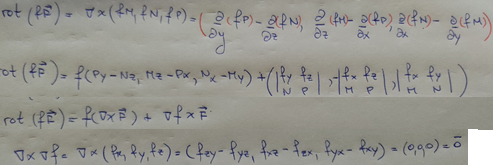 rot (fF⃗) = ∇×(fM, fN, fP) = (∂/∂y (fP) − ∂/∂z (fN), ∂/∂z (fM) − ∂/∂x (fP), ∂/∂x (fN) − ∂/∂y (fM))
rot (fF⃗) = f(Py − Nz, Mz − Px, Nx − My) + (|fy fz; N P|, −|fx fz; M P|, |fx fy; M N|)
rot (fF⃗) = f(∇×F⃗) + ∇f×F⃗
∇×∇f = ∇×(fx, fy, fz) = (fzy − fyz, fxz − fzx, fyx − fxy) = (0,0,0) = 0⃗